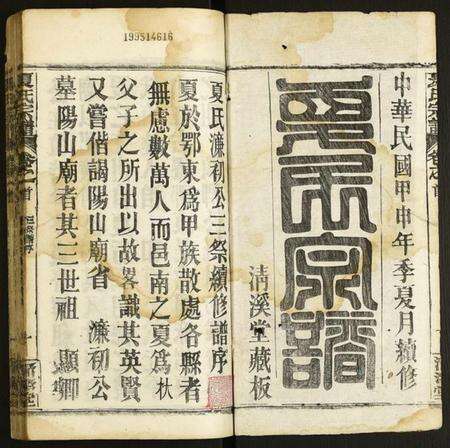 199314616
中華民國甲申年季夏月續修
夏氏宗譜
清溪堂藏板
夏氏濂初公三祭續修譜序
夏於鄂東爲甲族散處各縣者
無慮數萬人而邑南之夏爲杕
父子之所出以故畧識其英賢
又嘗偕謁陽山廟省 濂初公
墓陽山廟者其三世祖 顯卿